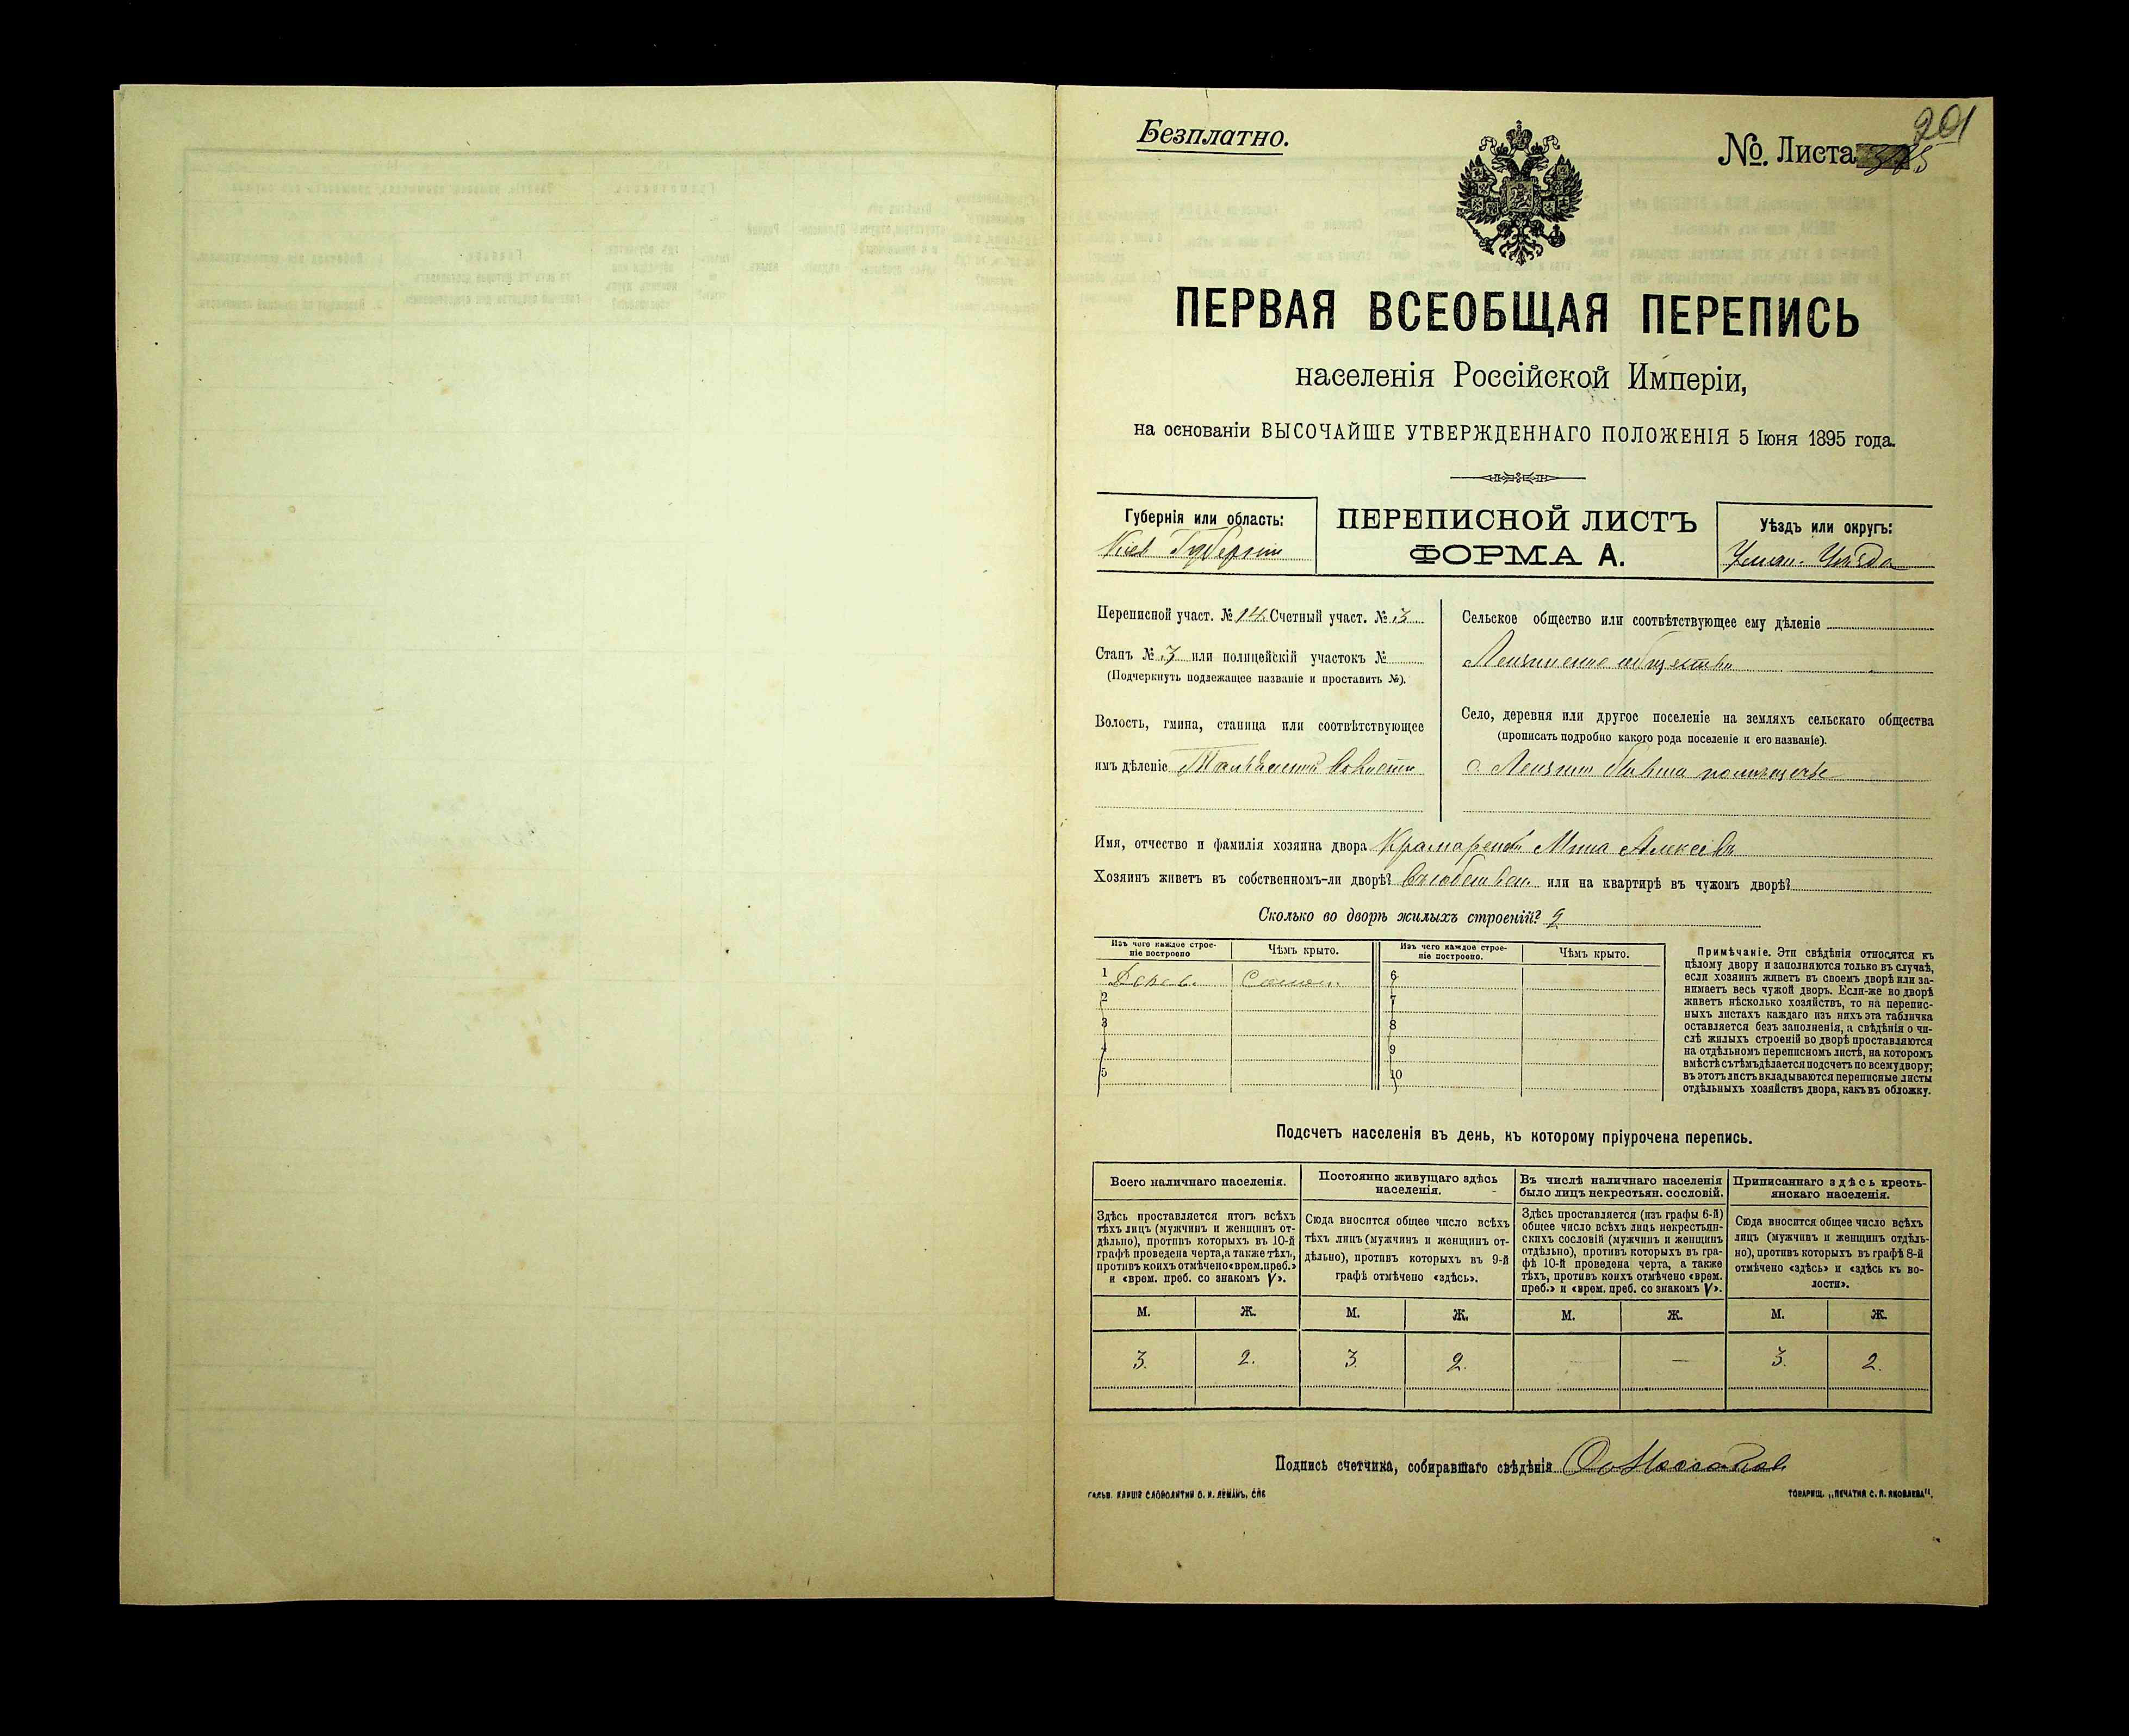 Безплатно.
№. Листа 375
201
ПЕРВАЯ ВСЕОБЩАЯ ПЕРЕПИСЬ
населенія Россійской Имперіи,
на основаніи ВЫСОЧАЙШЕ УТВЕРЖДЕННАГО ПОЛОЖЕНІЯ 5 Іюня 1895 года.
Губернія или область:
Кіев Губерніи
ПЕРЕПИСНОЙ ЛИСТЪ
ФОРМА А.
Уѣздъ или округъ:
Уман. Уѣзда
Переписной участ. № 14. Счетный участ. № 3
Станъ № 3 или полицейскій участокъ №
(Подчеркнуть подлежащее названіе и проставить №).
Волость, гмина, станица или соотвѣтствующее
имъ дѣленіе Тальянской Волости
Сельское общество или соотвѣтствующее ему дѣленіе
общества
Село, деревня или другое поселеніе на земляхъ сельскаго общества
(прописать подробно какого рода поселеніе и его названіе).
с.
Имя, отчество и фамилія хозяина двора Крамаренко Мина Алексѣевъ
Хозяинъ живетъ въ собственномъ-ли дворѣ? Въ собствен. или на квартирѣ въ чужомъ дворѣ?
Сколько во дворѣ жилыхъ строеній? 2
Изъ чего каждое строе-
ніе построено
Чѣмъ крыто.
Изъ чего каждое строе-
ніе построено.
Чѣмъ крыто.
1 Дерев. Солом. 6
2 7
3 8
4 9
5 10
Примѣчаніе. Эти свѣдѣнія относятся къ
цѣлому двору и заполняются только въ случаѣ,
если хозяинъ живетъ въ своемъ дворѣ или за-
нимаетъ весь чужой дворъ. Если-же во дворѣ
живетъ нѣсколько хозяйствъ, то на перепис-
ныхъ листахъ каждаго изъ нихъ эта табличка
оставляется безъ заполненія, а свѣдѣнія о чи-
слѣ жилыхъ строеній во дворѣ проставляются
на отдѣльномъ переписномъ листѣ, на которомъ
вмѣстѣ съ тѣмъ дѣлается подсчетъ по всему двору;
въ этотъ листъ вкладываются переписные листы
отдѣльныхъ хозяйствъ двора, какъ въ обложку.
Подсчетъ населенія въ день, къ которому пріурочена перепись.
Всего наличнаго населенія.
Здѣсь проставляется итогъ всѣхъ
тѣхъ лицъ (мужчинъ и женщинъ от-
дѣльно), противъ которыхъ въ 10-й
графѣ проведена черта, а также тѣхъ,
противъ коихъ отмѣчено «врем. преб.»
и «врем. преб. со знакомъ V».
Постоянно живущаго здѣсь
населенія.
Сюда вносится общее число всѣхъ
тѣхъ лицъ (мужчинъ и женщинъ от-
дѣльно), противъ которыхъ въ 9-й
графѣ отмѣчено «здѣсь».
Въ числѣ наличнаго населенія
было лицъ некрестьян. сословій.
Здѣсь проставляется (изъ графы 6-й)
общее число всѣхъ лицъ некрестьян-
скихъ сословій (мужчинъ и женщинъ
отдѣльно), противъ которыхъ въ гра-
фѣ 10-й проведена черта, а также
тѣхъ, противъ коихъ отмѣчено «врем.
преб.» и «врем. преб. со знакомъ V».
Приписаннаго здѣсь кресть-
янскаго населенія.
Сюда вносится общее число всѣхъ
лицъ (мужчинъ и женщинъ отдѣль-
но), противъ которыхъ въ графѣ 8-й
отмѣчено «здѣсь» и «здѣсь къ во-
лости».
М. Ж. М. Ж. М. Ж. М. Ж.
3. 2. 3. 2. — — 3. 2.
Подпись счетчика, собиравшаго свѣдѣнія
ГАЛЬВ. КЛИШЕ СЛОВОЛИТНИ О. И. ЛЕМАНЪ, СПБ
ТОВАРИЩ. „ПЕЧАТНЯ С. П. ЯКОВЛЕВА".